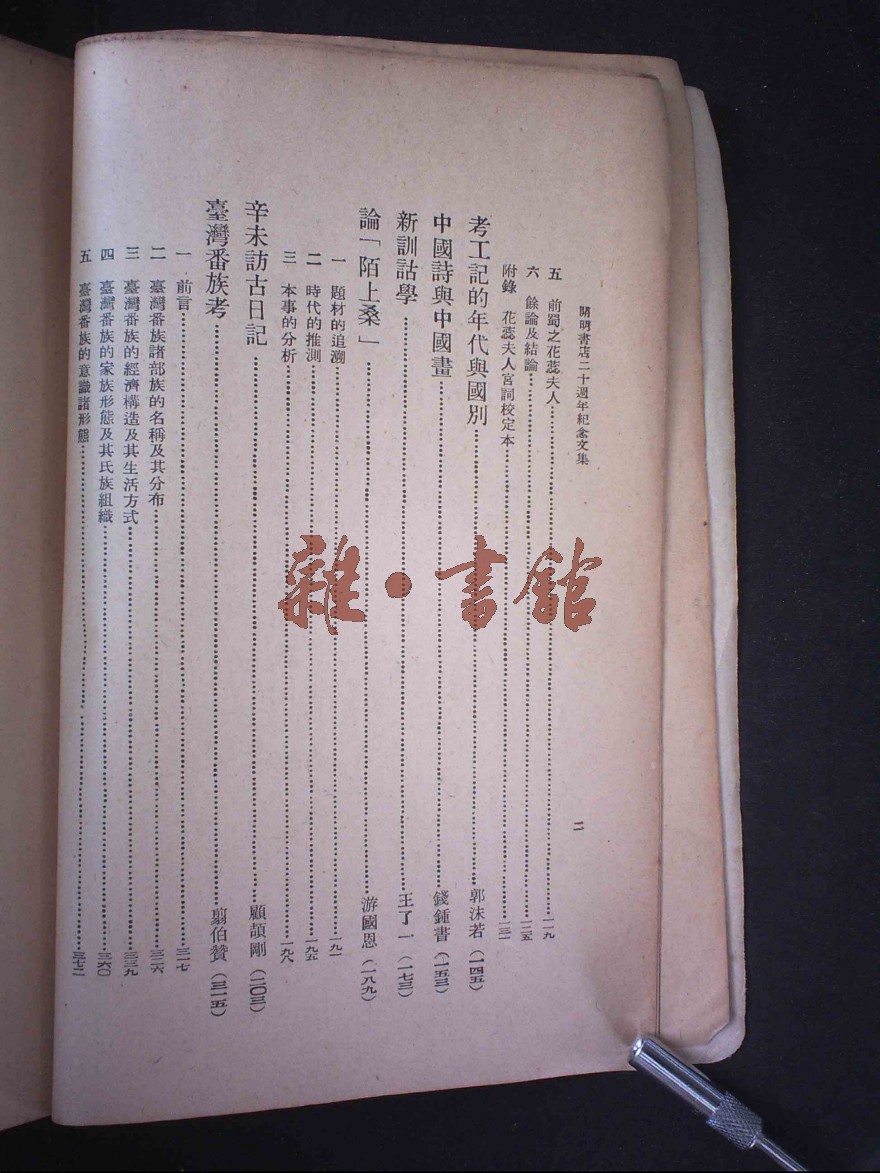 開明書店二十週年紀念文集
二
五 前蜀之花蕊夫人 一一九
六 餘論及結論 一二五
附錄 花蕊夫人宮詞校定本 一三一
考工記的年代與國別 郭沫若(一四五)
中國詩與中國畫 錢鍾書(一五三)
新訓詁學 王了一(一七三)
論「陌上桑」 游國恩(一八九)
一 題材的追溯 一九一
二 時代的推測 一九五
三 本事的分析 一九八
辛未訪古日記 顧頡剛(二〇三)
臺灣番族考 翦伯贊(三一五)
一 前言 三一七
二 臺灣番族諸部族的名稱及其分布 三二六
三 臺灣番族的經濟構造及其生活方式 三三九
四 臺灣番族的家族形態及其氏族組織 三六〇
五 臺灣番族的意識諸形態 三七二
雜·書館